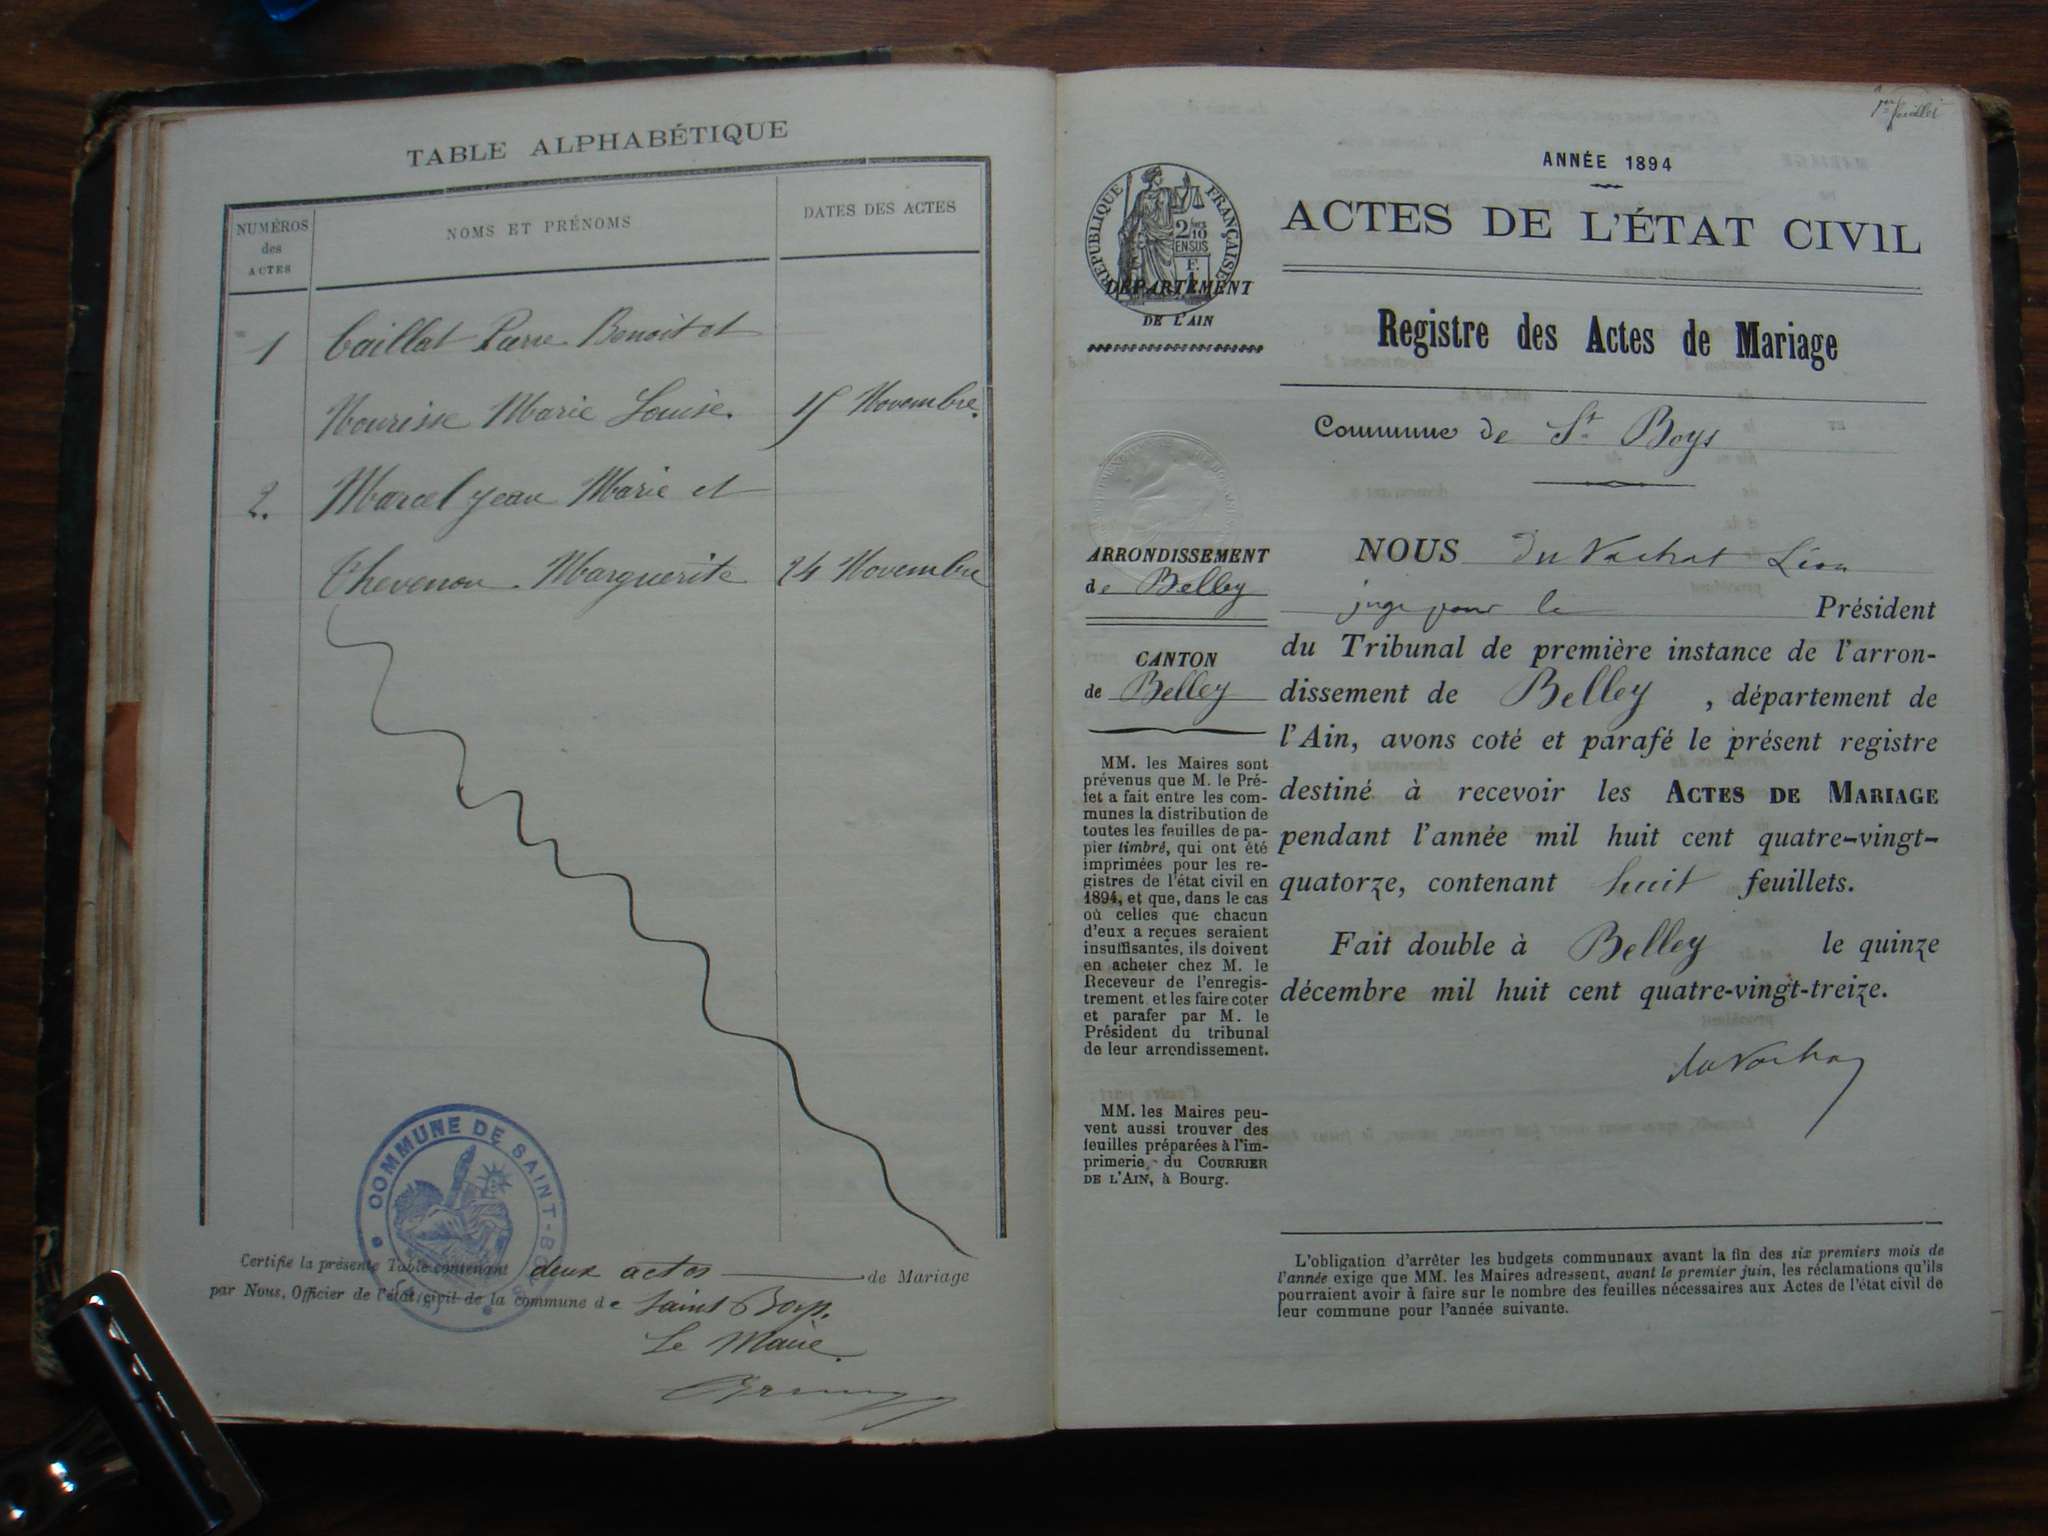 TABLE ALPHABÉTIQUE
NUMÉROS
des
ACTES
NOMS ET PRÉNOMS
DATES DES ACTES
1 Caillat Pierre Benoit et
Nourisse Marie Louise. 15 Novembre.
2. Marcel Jean Marie et
Chevenou Marguerite 24 Novembre
COMMUNE DE SAINT-B
Certifie la présente Table contenant deux actes de Mariage
par Nous, Officier de l'état civil de la commune de Saint Boys.
Le Maire.
1er feuillet
ANNÉE 1894
ACTES DE L'ÉTAT CIVIL
RÉPUBLIQUE FRANÇAISE
2/10 EN SUS
DÉPARTEMENT
DE L'AIN
Registre des Actes de Mariage
Commune de St Boys
ARRONDISSEMENT
de Belley
CANTON
de Belley
MM. les Maires sont
prévenus que M. le Pré-
fet a fait entre les com-
munes la distribution de
toutes les feuilles de pa-
pier timbré, qui ont été
imprimées pour les re-
gistres de l'état civil en
1894, et que, dans le cas
où celles que chacun
d'eux a reçues seraient
insuffisantes, ils doivent
en acheter chez M. le
Receveur de l'enregis-
trement et les faire coter
et parafer par M. le
Président du tribunal
de leur arrondissement.
MM. les Maires peu-
vent aussi trouver des
feuilles préparées à l'im-
primerie du COURRIER
DE L'AIN, à Bourg.
NOUS du Vachat Léon
juge pour le Président
du Tribunal de première instance de l'arron-
dissement de Belley, département de
l'Ain, avons coté et parafé le présent registre
destiné à recevoir les ACTES DE MARIAGE
pendant l'année mil huit cent quatre-vingt-
quatorze, contenant huit feuillets.
Fait double à Belley le quinze
décembre mil huit cent quatre-vingt-treize.
du Vachat
L'obligation d'arrêter les budgets communaux avant la fin des six premiers mois de
l'année exige que MM. les Maires adressent, avant le premier juin, les réclamations qu'ils
pourraient avoir à faire sur le nombre des feuilles nécessaires aux Actes de l'état civil de
leur commune pour l'année suivante.